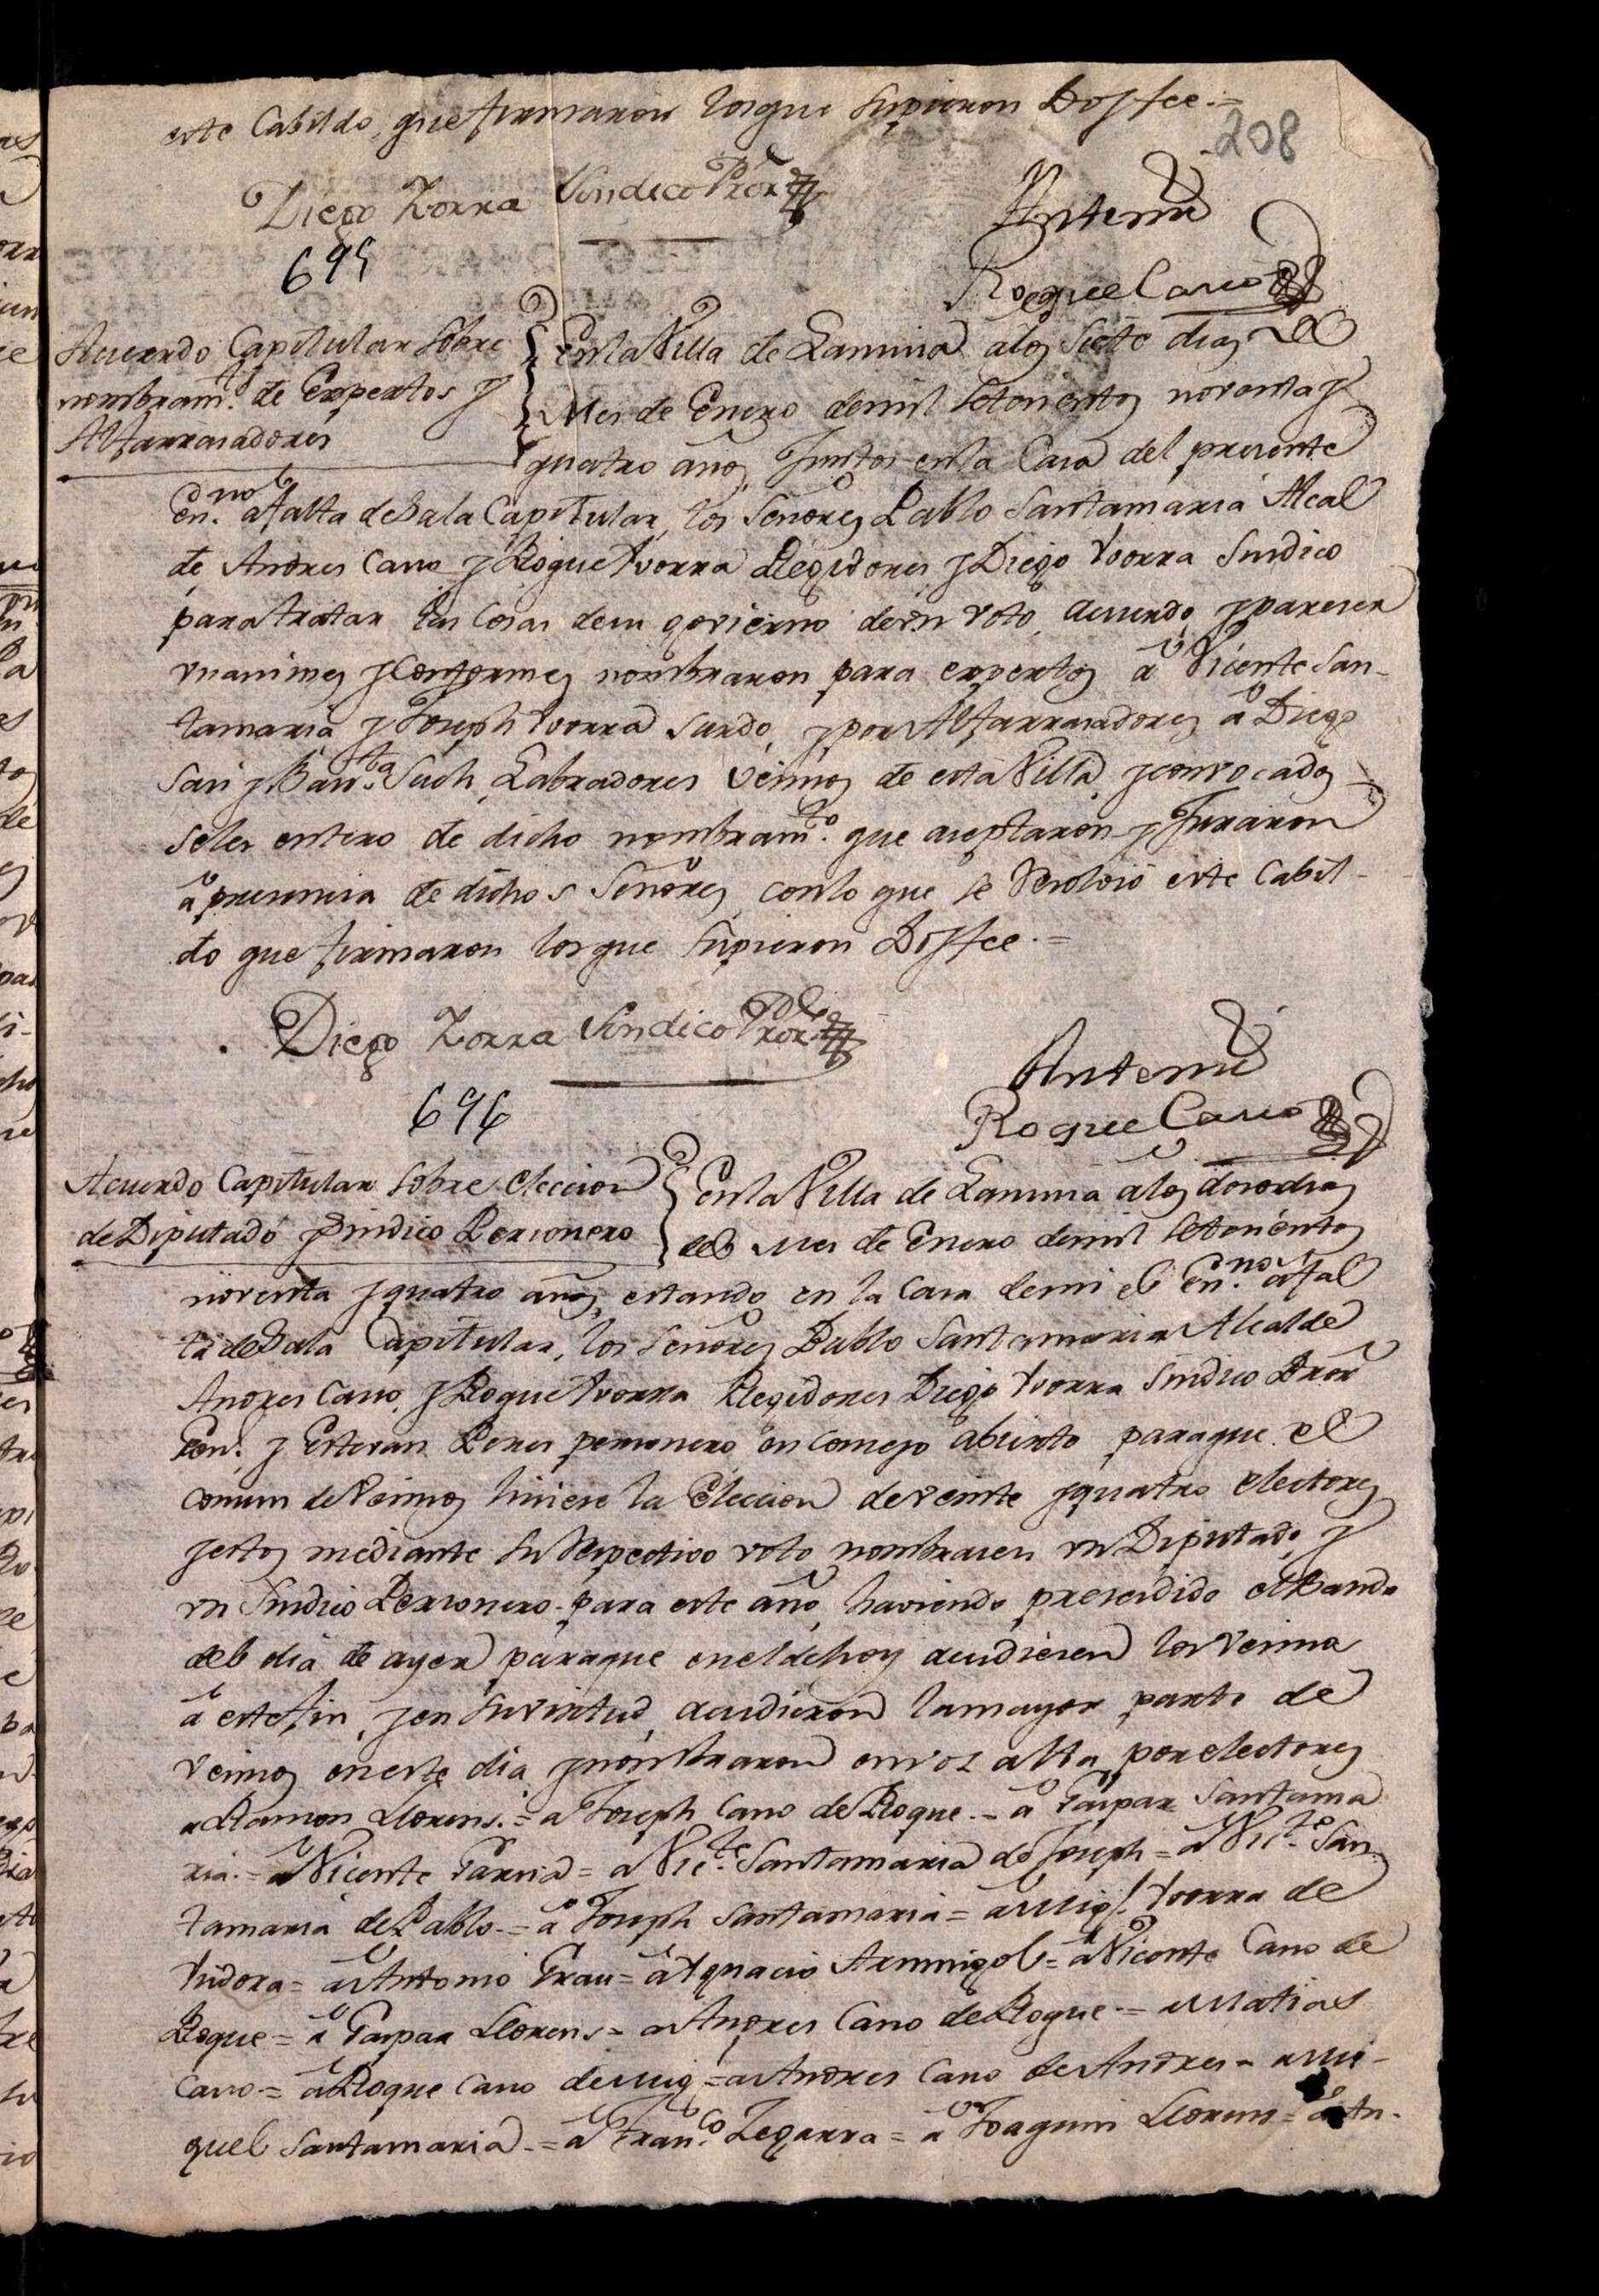 este Cabildo, que firmaron los que Supieron Doyfee.=
208
Diego Yorra Sindico Pror
Antemi
695
Roque Cano
Acuerdo Capitular Sobre
nombram.to de Expertos y
Alfarrasadores
En la Villa de Lanuña a los Siete dias del
Mes de Enero de mil Setecientos noventa y
quatro años, Juntos en la Casa del presente
En.no a falta de Sala Capitular, los Señores Pablo Santamaria Alcal
de Andres Cano y Roque Yvorra Regidores y Diego Yvorra Sindico
para tratar las Cosas de su govierno de un voto, acuerdo, y parecer
unanimes y Conformes nombraron para expertos â Vicente San-
tamaria y Joseph Yvorra Surdo, y por Alfarrasadores â Diego
Sari y Bau.ta Such, Labradores vecinos de esta Villa, y convocados
seles entero de dicho nombram.to que aceptaron y Juraron
â presencia de dichos Señores, con lo que se resolvio este Cabil-
do que firmaron los que Supieron Doyfee.=
Diego Yorra Sindico Pror
Antemi
696
Roque Cano
Acuerdo Capitular Sobre eleccion
de Diputado y Sindico Personero
En la Villa de Lanuña â los doce dias
del Mes de Enero de mil Setecientos
noventa y quatro años, estando en la Casa de mi el En.no a fal
ta de Sala Capitular, los Señores Pablo Santamaria Alcalde
Andres Cano, y Roque Yvorra Regidores Diego Yvorra Sindico Pror
Gen.l y Estevan Peres personero en Consejo abierto para que el
comun de Vecinos hiciese la Eleccion de veinte y quatro electores
y estos mediante su respectivo voto nombrasen un Diputado, y
un Sindico Personero para este año, haviendo precedido el Bando
del dia de ayer para que en el de hoy acudiesen los Vecinos
â este fin, y en su virtud, acudieron la mayor parte de
vecinos en este dia y nombraron en voz alta por electores
a Ramon Llorens.= a Joseph Cano de Roque.= â Gaspar Santama
ria.= â Vicente Garcia= a Vic.te Santamaria de Joseph= â Vic.te San
tamaria de Pablo.= â Joseph Santamaria= â Mig.l Yvorra de
Ysidora= â Antonio Grau= â Ygnacio Armingol= â Vicente Cano de
Roque= â Gaspar Llorens= a Andres Cano de Roque.= Matias
Cano= â Roque Cano de Mig= a Andres Cano de Andres= a Mi-
guel Santamaria.= â Fran.co Zegarra= â Joaquin Llorens= â An-